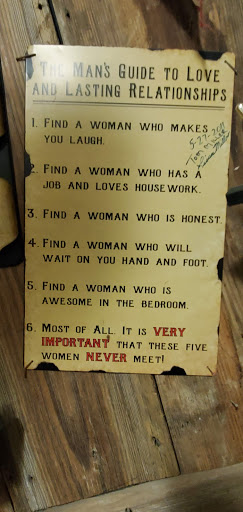 THE MAN'S GUIDE TO LOVE
AND LASTING RELATIONSHIPS
1. FIND A WOMAN WHO MAKES
YOU LAUGH.
2. FIND A WOMAN WHO HAS A
JOB AND LOVES HOUSEWORK.
3. FIND A WOMAN WHO IS HONEST.
4. FIND A WOMAN WHO WILL
WAIT ON YOU HAND AND FOOT.
5. FIND A WOMAN WHO IS
AWESOME IN THE BEDROOM.
6. MOST OF ALL, IT IS VERY
IMPORTANT THAT THESE FIVE
WOMEN NEVER MEET!